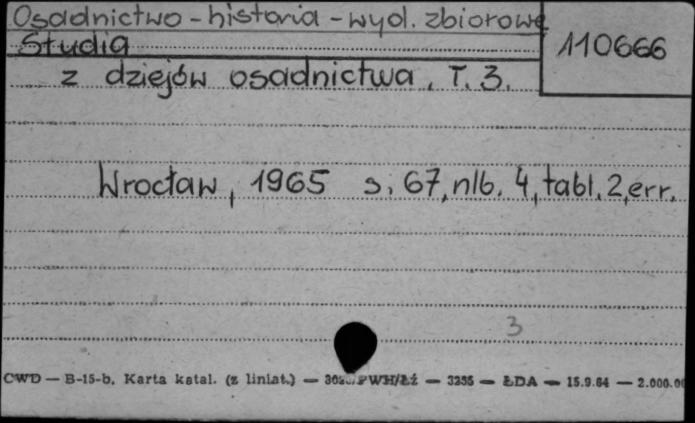 Osadnictwo - historia - wyd. zbiorowe
110666
Studia
z dziejów osadnictwa, T. 3.
Wrocław, 1965 s. 67, nlb. 4, tabl. 2, err.
3
CWD — B-15-b, Karta katal. (z liniat.) — PWH/Łź — 3235 — ŁDA — 15.9.64 — 2.000.00